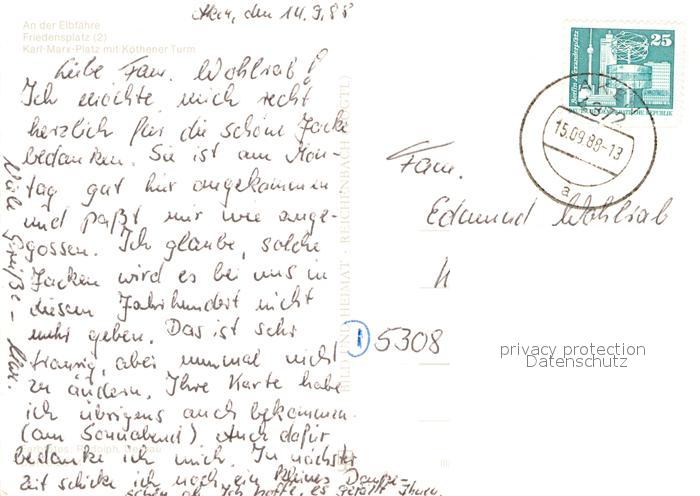 Aken, den 14.9.88
An der Elbfähre
Friedensplatz (2)
Karl-Marx-Platz mit Köthener Turm
Liebe Fam. Wohlrab!
Ich möchte mich recht
herzlich für die schöne Jacke
bedanken. Sie ist am Mon-
tag gut hier angekommen
und paßt mir wie ange-
gossen. Ich glaube, solche
Jacken wird es bei uns in
diesem Jahrhundert nicht
mehr geben. Das ist sehr
traurig, aber nunmal nicht
zu ändern. Ihre Karte habe
ich übrigens auch bekommen.
(am Sonnabend) Auch dafür
bedanke ich mich. In nächster
Zeit schicke ich noch ein kleines Danke-
schön ab. Ich hoffe, es gefällt Ihnen.
Viele Grüße –
BILD UND HEIMAT · REICHENBACH (VOGTL)
25
Berlin, Alexanderplatz
AKEN
4372
15.09.88-13
a
Fam.
Edmund Wohlrab
W
5308
privacy protection
Datenschutz